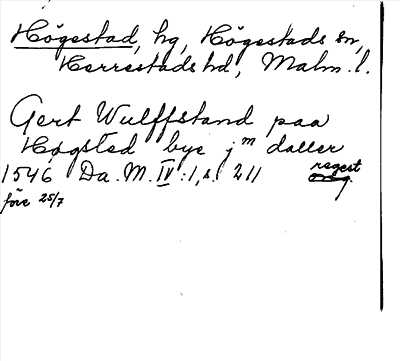 Högestad, hg, Högestads sn,
Herrestads hd, Malm. l.
Gert Wulffstand paa
Høgsted bye j m daller
1546 Da. M. IV:1, s. 211 regest
före 25/7